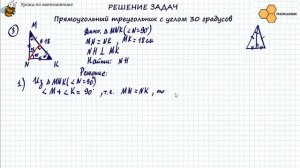 Уроки по математике
РЕШЕНИЕ ЗАДАЧ
Прямоугольный треугольник с углом 30 градусов
Дано: △MNK (∠N=90°)
MN = NK, MK = 18 см
NH ⊥ MK
Найти: NH
Решение:
1) Из △MNK (∠N=90°)
∠M + ∠K = 90°, т.к. MN = NK, то
M
N
K